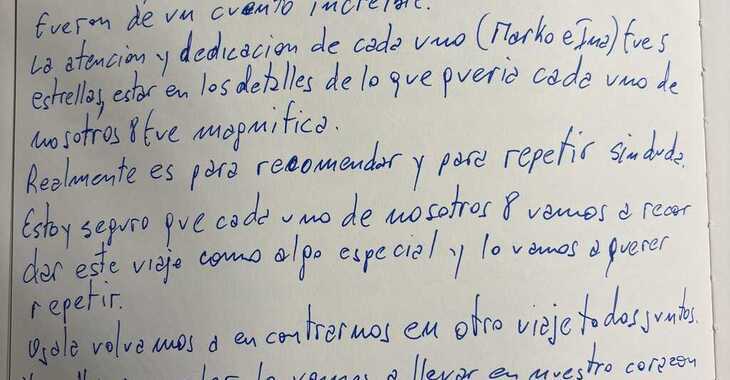 fueron de un cuento increible.
La atención y dedicación de cada uno (Marko e Ina) fue 5
estrellas, estar en los detalles de lo que queria cada uno de
nosotros 8 fue magnifica.
Realmente es para recomendar y para repetir sin duda.
Estoy seguro que cada uno de nosotros 8 vamos a recor
dar este viaje como algo especial y lo vamos a querer
repetir.
Ojala volvamos a encontrarnos en otro viaje todos juntos.
lo vamos a llevar en nuestro corazon